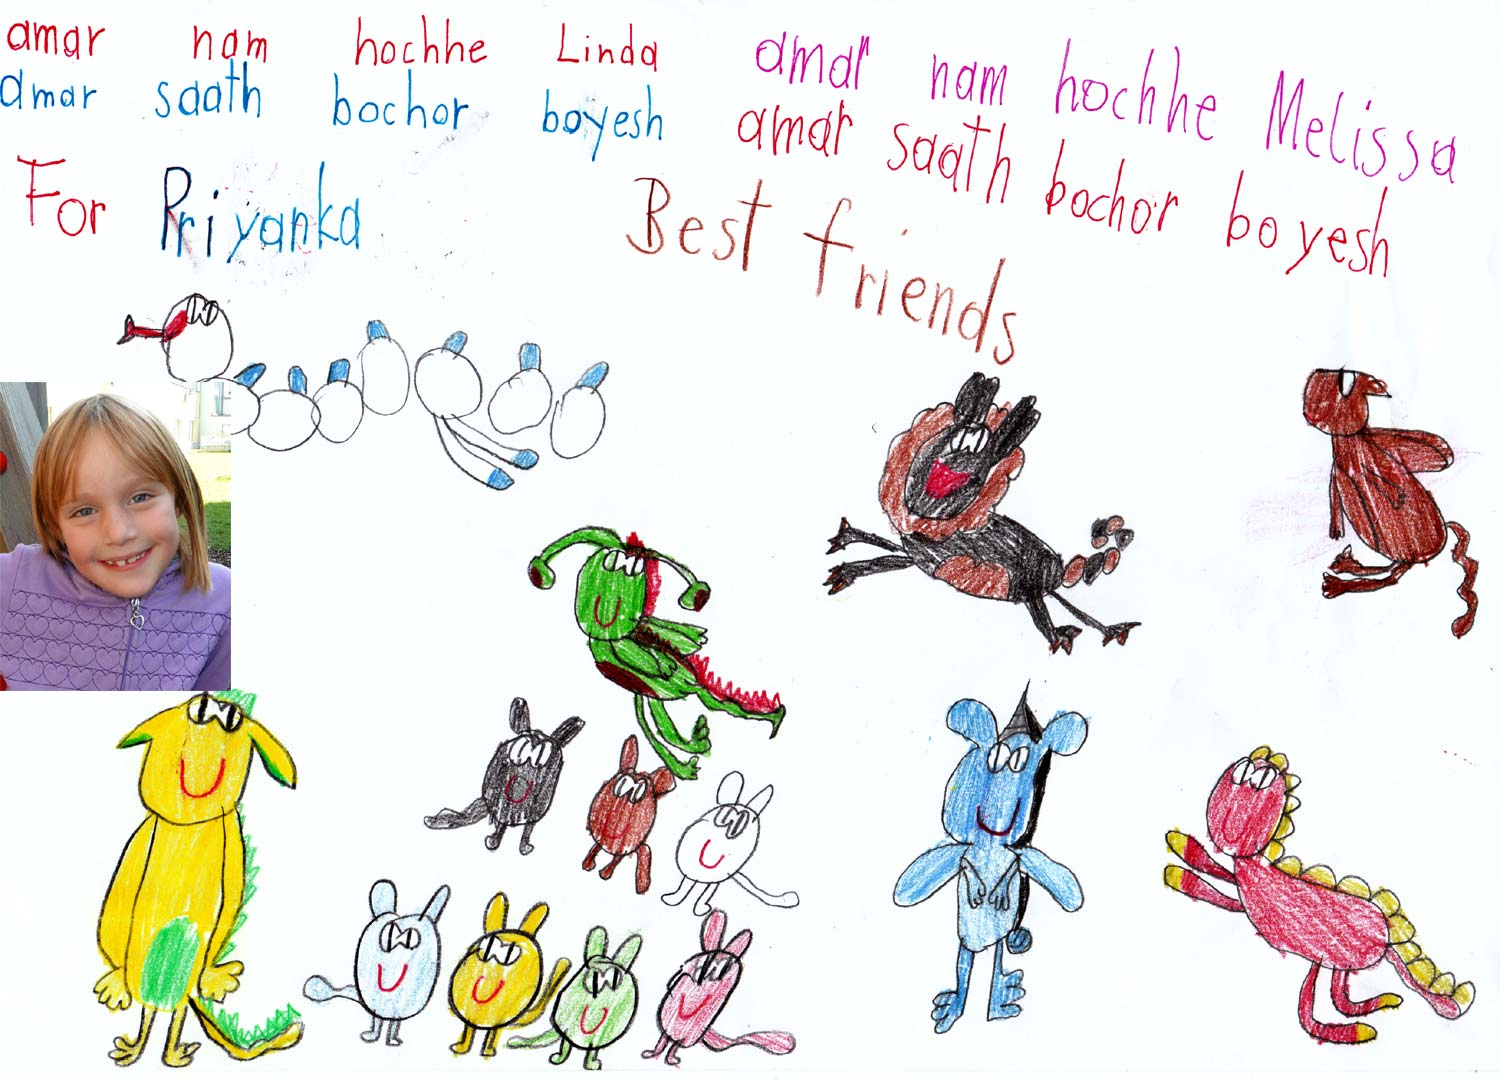 amar nam hochhe Linda
amar saath bochor boyesh
For Priyanka
amar nam hochhe Melissa
amar saath bochor boyesh
Best friends